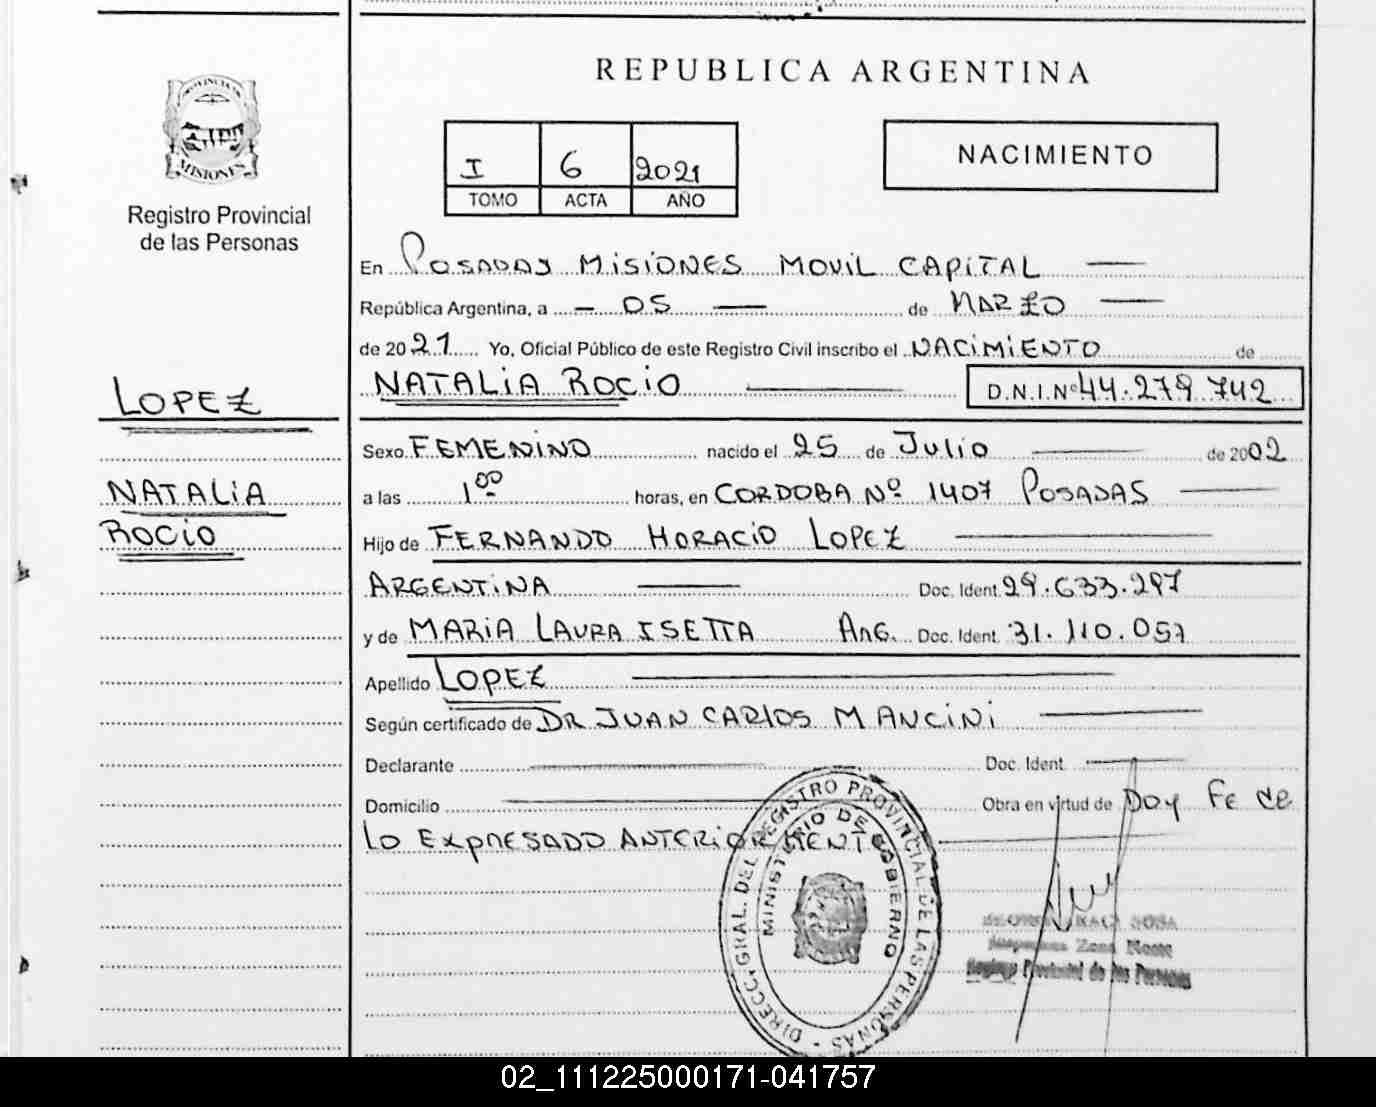 REPUBLICA ARGENTINA
PROVINCIA DE
MISIONES
Registro Provincial
de las Personas
I 6 2021
TOMO ACTA AÑO
NACIMIENTO
En Posadas Misiones Movil Capital
República Argentina, a - 05 de Marzo
de 2021 Yo, Oficial Público de este Registro Civil inscribo el NACIMIENTO de
NATALIA ROCIO D.N.I.Nº 44.279.742
LOPEZ
NATALIA
ROCIO
Sexo FEMENINO nacido el 25 de Julio de 2002
a las 1 00 horas, en CORDOBA Nº 1407 POSADAS
Hijo de FERNANDO HORACIO LOPEZ
ARGENTINA Doc. Ident. 29.633.297
y de MARIA LAURA ISETTA ARG. Doc. Ident. 31.110.057
Apellido LOPEZ
Según certificado de DR JUAN CARLOS MANCINI
Declarante Doc. Ident
Domicilio Obra en virtud de Doy Fe de
lo Expresado ANTERIORMENTE
DIRECC. GRAL. DEL REGISTRO PROVINCIAL DE LAS PERSONAS
MINISTERIO DE GOBIERNO
SOSA
Zona
Registro Provincial de las Personas
02_111225000171-041757